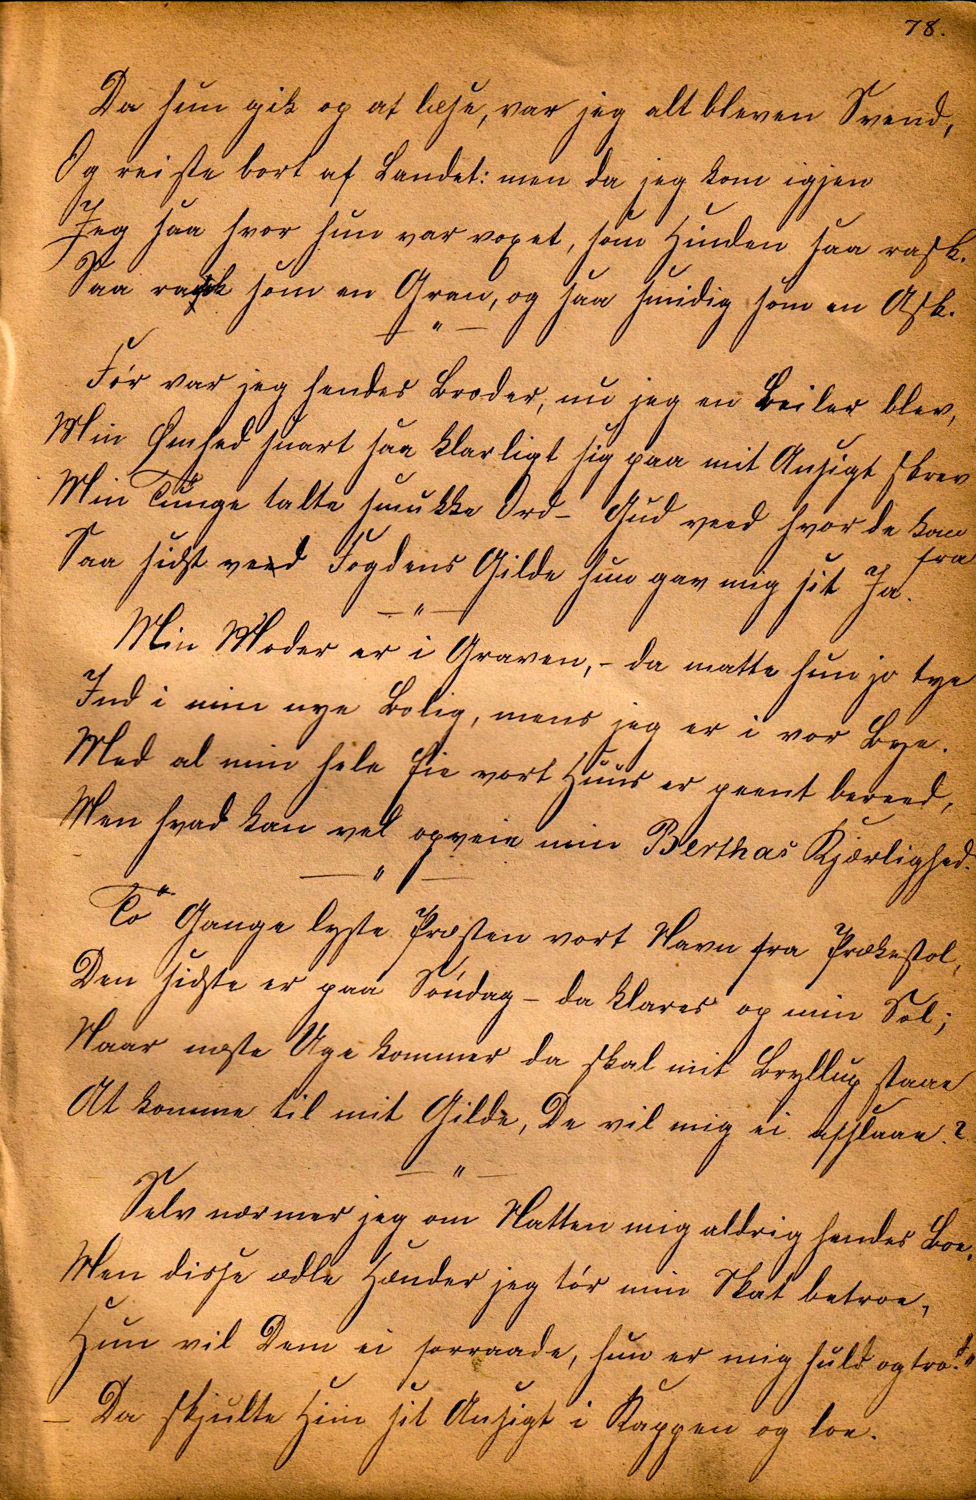 78.
Da hun gik op at læse, var jeg alt bleven Svend,
Og reiste bort af Landet: men da jeg kom igjen
Jeg saa hvor hun var voxet, som Hinden saa rask.
Saa rask som en Gran, og saa smidig som en Ask.
— " —
Før var jeg hendes Broder, nu jeg en Beiler blev,
Min Ømhed snart saa klarligt sig paa mit Ansigt skrev
Min Tunge talte smukke Ord – Gud veed hvor de kom
fra
Saa sidst veed Fogdens Gilde hun gav mig sit Ja.
— " —
Min Moder er i Graven, – da matte hun jo tye
Ind i min nye Bolig, mens jeg er i vor Bye.
Med al min hele Fie vort Huus er peent bereed,
Men hvad kan vel opveie min Berthas Kjærlighed.
— " —
To Gange lyste Præsten vort Navn fra Prækestol,
Den sidste er paa Søndag – da klares op min Sol;
Naar næste Uge kommer da skal mit Bryllup staae
At komme til mit Gilde, De vil mig ei afslaae?
— " —
Selv nærmer jeg om Natten mig aldrig hendes Boe,
Men disse ædle Hænder jeg tør min Skat betroe,
Hun vil Dem ei forraade, hun er mig huld og tro!"
– Da skjulte Hiin sit Ansigt i Kappen og loe.